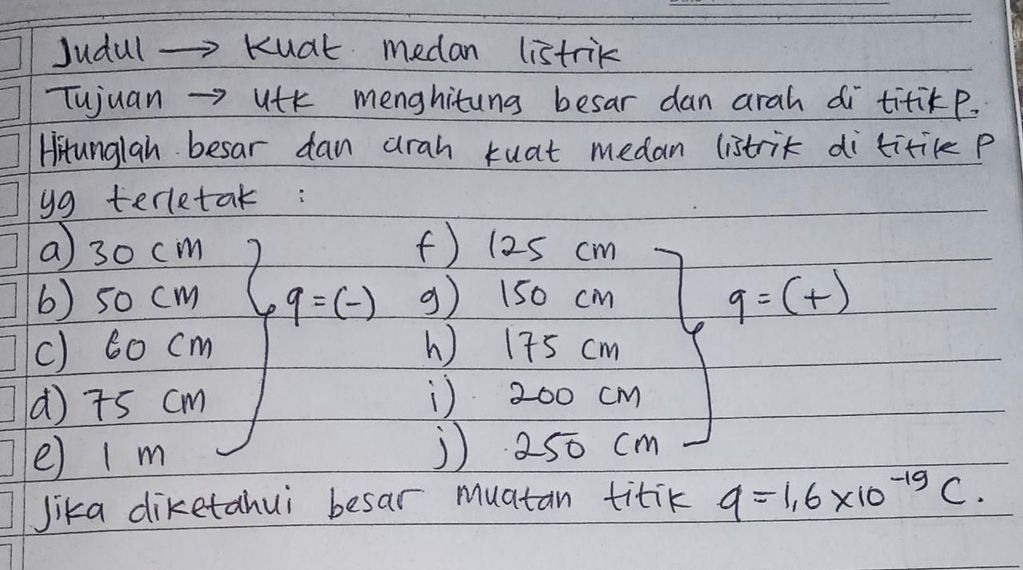 Judul → Kuat medan listrik
Tujuan → utk menghitung besar dan arah di titik P.
Hitunglah besar dan arah kuat medan listrik di titik P
yg terletak :
a) 30 cm f) 125 cm
b) 50 cm q = (-) g) 150 cm q = (+)
c) 60 cm h) 175 cm
d) 75 cm i) 200 cm
e) 1 m j) 250 cm
Jika diketahui besar muatan titik q = 1,6 x 10⁻¹⁹ C.